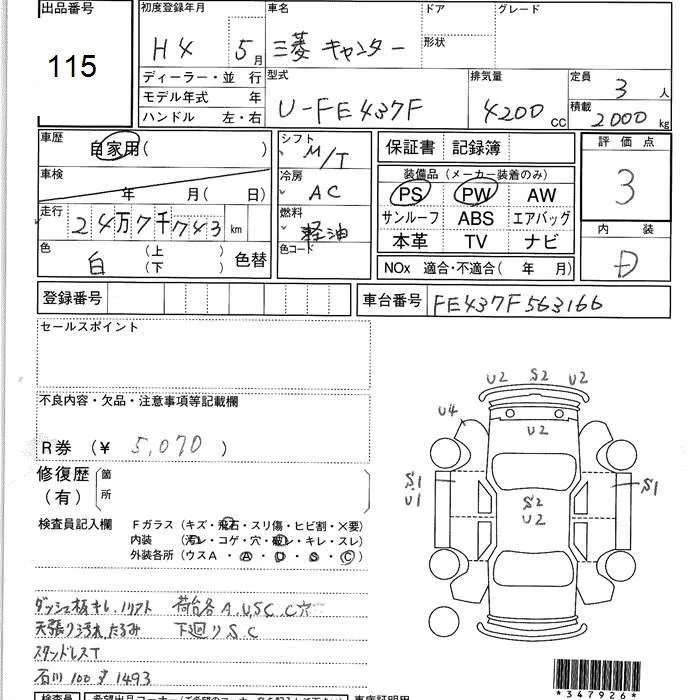 出品番号
115
初度登録年月
H4 5月
ディーラー・並 行
モデル年式 年
ハンドル 左・右
車名
三菱 キャンター
ドア
形状
グレード
型式
U-FE437F
排気量
4200 CC
定員 3 人
積載 2000 kg
車歴
自家用( )
車検
年 月( 日)
走行
24万7千743 km
色
白 (上 下) 色替
シフト
M/T
冷房
AC
燃料
軽油
色コード
保証書 記録簿
装備品(メーカー装着のみ)
PS PW AW
サンルーフ ABS エアバッグ
本革 TV ナビ
NOx 適合・不適合( 年 月)
評価点
3
内装
D
登録番号
車台番号 FE437F563166
セールスポイント
不良内容・欠品・注意事項等記載欄
R券 (¥ 5,070 )
修復歴
(有)
箇所
検査員記入欄
Fガラス(キズ・飛石・スリ傷・ヒビ割・×要)
内装 (汚レ・コゲ・穴・破レ・キレ・スレ)
外装各所(ウスA・A・U・S・C)
ダッシュ板キレ、ノリアト 荷台各A.U.S.C.C穴
天張り汚れ たるみ 下廻りS.C
スタッドレスT
石川 100 す 1493
U2 S2 U2
U4
U2
S1
U1
S1
S2
U2
*347926*
検査員
希望出品コーナー(ご希望のコーナー名を記入して下さい)
車庫証明用